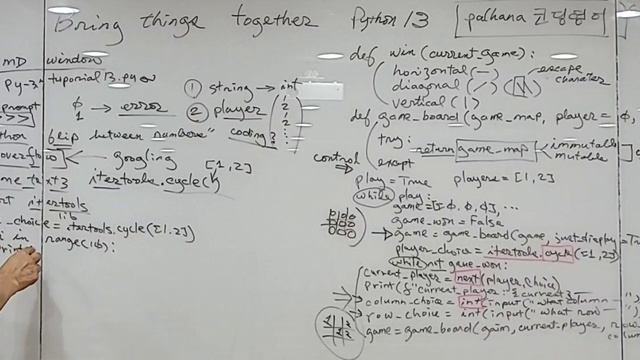 Bring things together Python 13 palhana 코딩형이
MD window
tuporial 13.py
φ
1 → error
① string → int
② player
1
2
1
2
prompt
>>>
flip between numbers" coding?
googling [1,2]
overflow
itertools.cycle(
itertools
lib
_choice = itertools.cycle([1,2])
i in range(10):
def win (current_game):
horizontal (—)
diagonal (/) (\) escape character
vertical (|)
def game_board(game_map, player = φ,
try:
return game_map immutable
mutable
except
control
play = True players = [1,2]
while play:
game = [[φ, φ, φ], ...
game_won = False
game = game_board(game, just_display = T
player_choice = itertools.cycle([1,2])
while not game_won:
current_player = next(player_choice)
print(f"current_player:
column_choice = int(input("what column
row_choice = int(input("what row
game = game_board(game, current_player, row